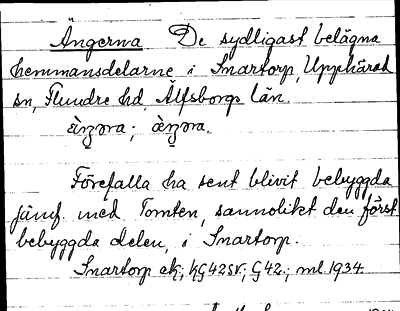 Ängerna De sydligast belägna
hemmansdelarne i Snartorp, Upphärad
sn, Flundre hd, Älfsborgs län.
Förefalla ha sent blivit bebyggda
jämf. med Tomten, sannolikt den först
bebyggda delen, i Snartorp.
Snartorp ek; hG42sv; G42.; ml. 1934